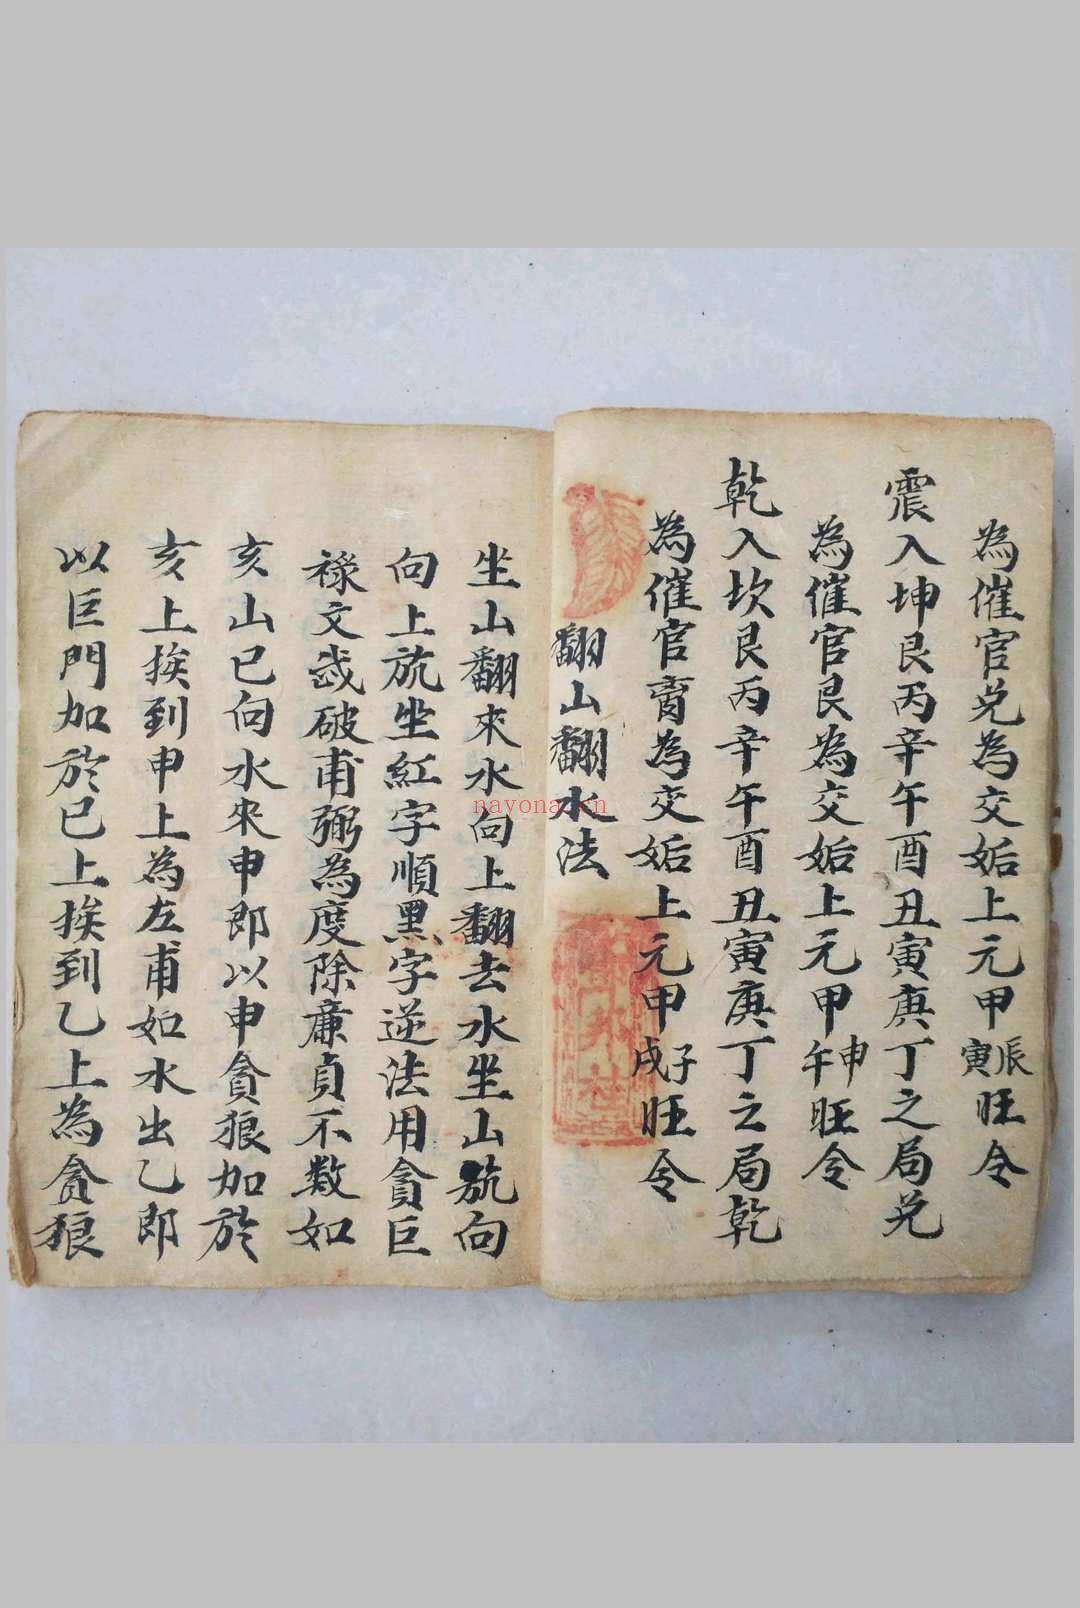 為催官兑為交姤上元甲寅辰旺令
震入坤艮丙辛午酉丑寅庚丁之局兑
為催官艮為交姤上元甲午申旺令
乾入坎艮丙辛午酉丑寅庚丁之局乾
為催官為交姤上元甲戌子旺令
翻山翻水法
坐山翻來水向上翻去水坐山旂向
向上旂坐紅字順黑字逆法用貪巨
祿文武破甫弼為度除亷貞不数如
亥山巳向水來申郎以申貪狼加於
亥上挨到申上為左甫如水出乙郎
以巨門加於巳上挨到乙上為貪狼
nayona.cn